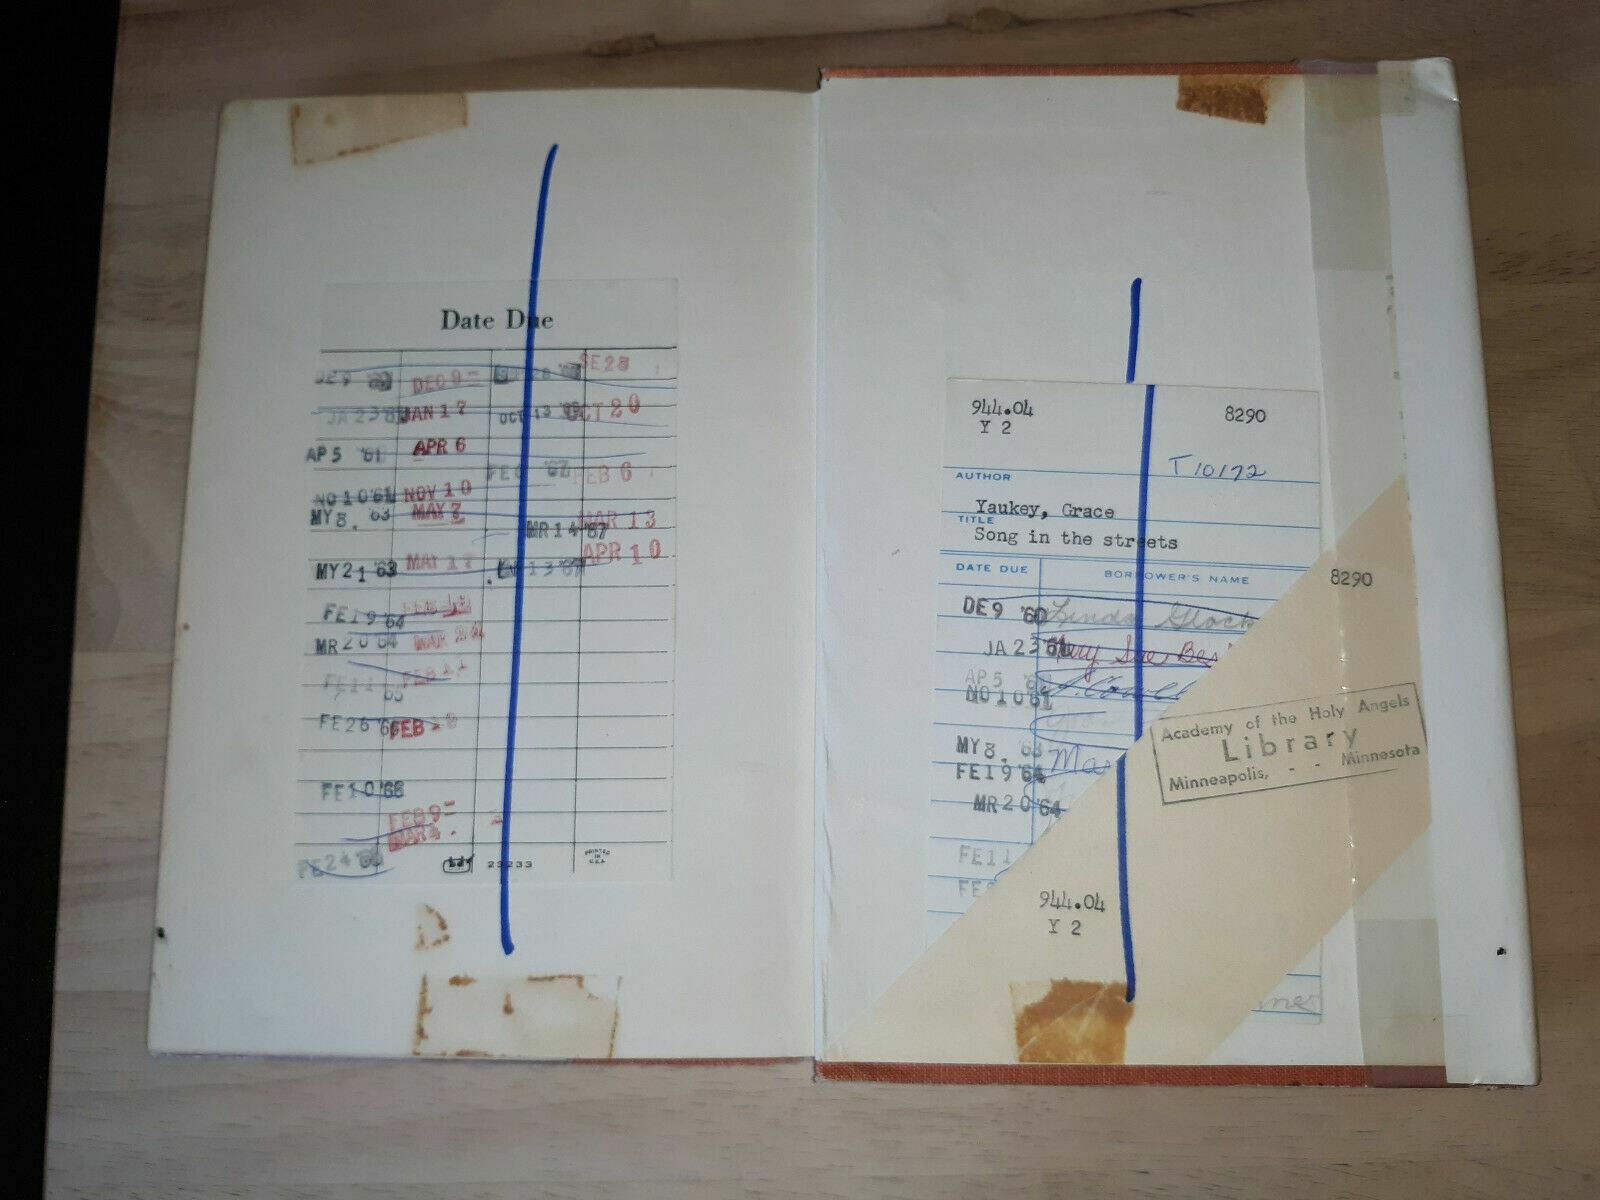 Date Due
DE 9 SE 28
DEC 9
JA 23 JAN 17 OCT 13 OCT 20
AP 5 '61 APR 6
FE 6 '67 FEB 6
NO 10 '61 NOV 10
MY 8. '63 MAY 7 MAR 13
MR 14 '67
MY 21 '63 MAY 17 APR 10
FE 19 '64
MR 20 '64 MAR 20
FE 11 '65 FEB 11
FE 26 '66 FEB
FE 10 '66
FEB 9
MAR 4
FE 24
23233
PRINTED
IN
U.S.A.
944.04 8290
Y 2
T 10172
AUTHOR
Yaukey, Grace
TITLE
Song in the streets
DATE DUE BORROWER'S NAME
DE 9 '60 Linda
JA 23 '61 Mary Sue
AP 5
NO 10 '61
MY 8. '63
FE 19 '64
MR 20 '64
FE 11
FE
8290
Academy of the Holy Angels
Library
Minneapolis, - - Minnesota
944.04
Y 2